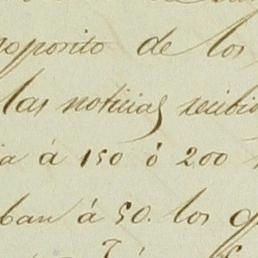 proposito de los
las noticias recibi
ia á 150 ó 200
ban á 50. los q